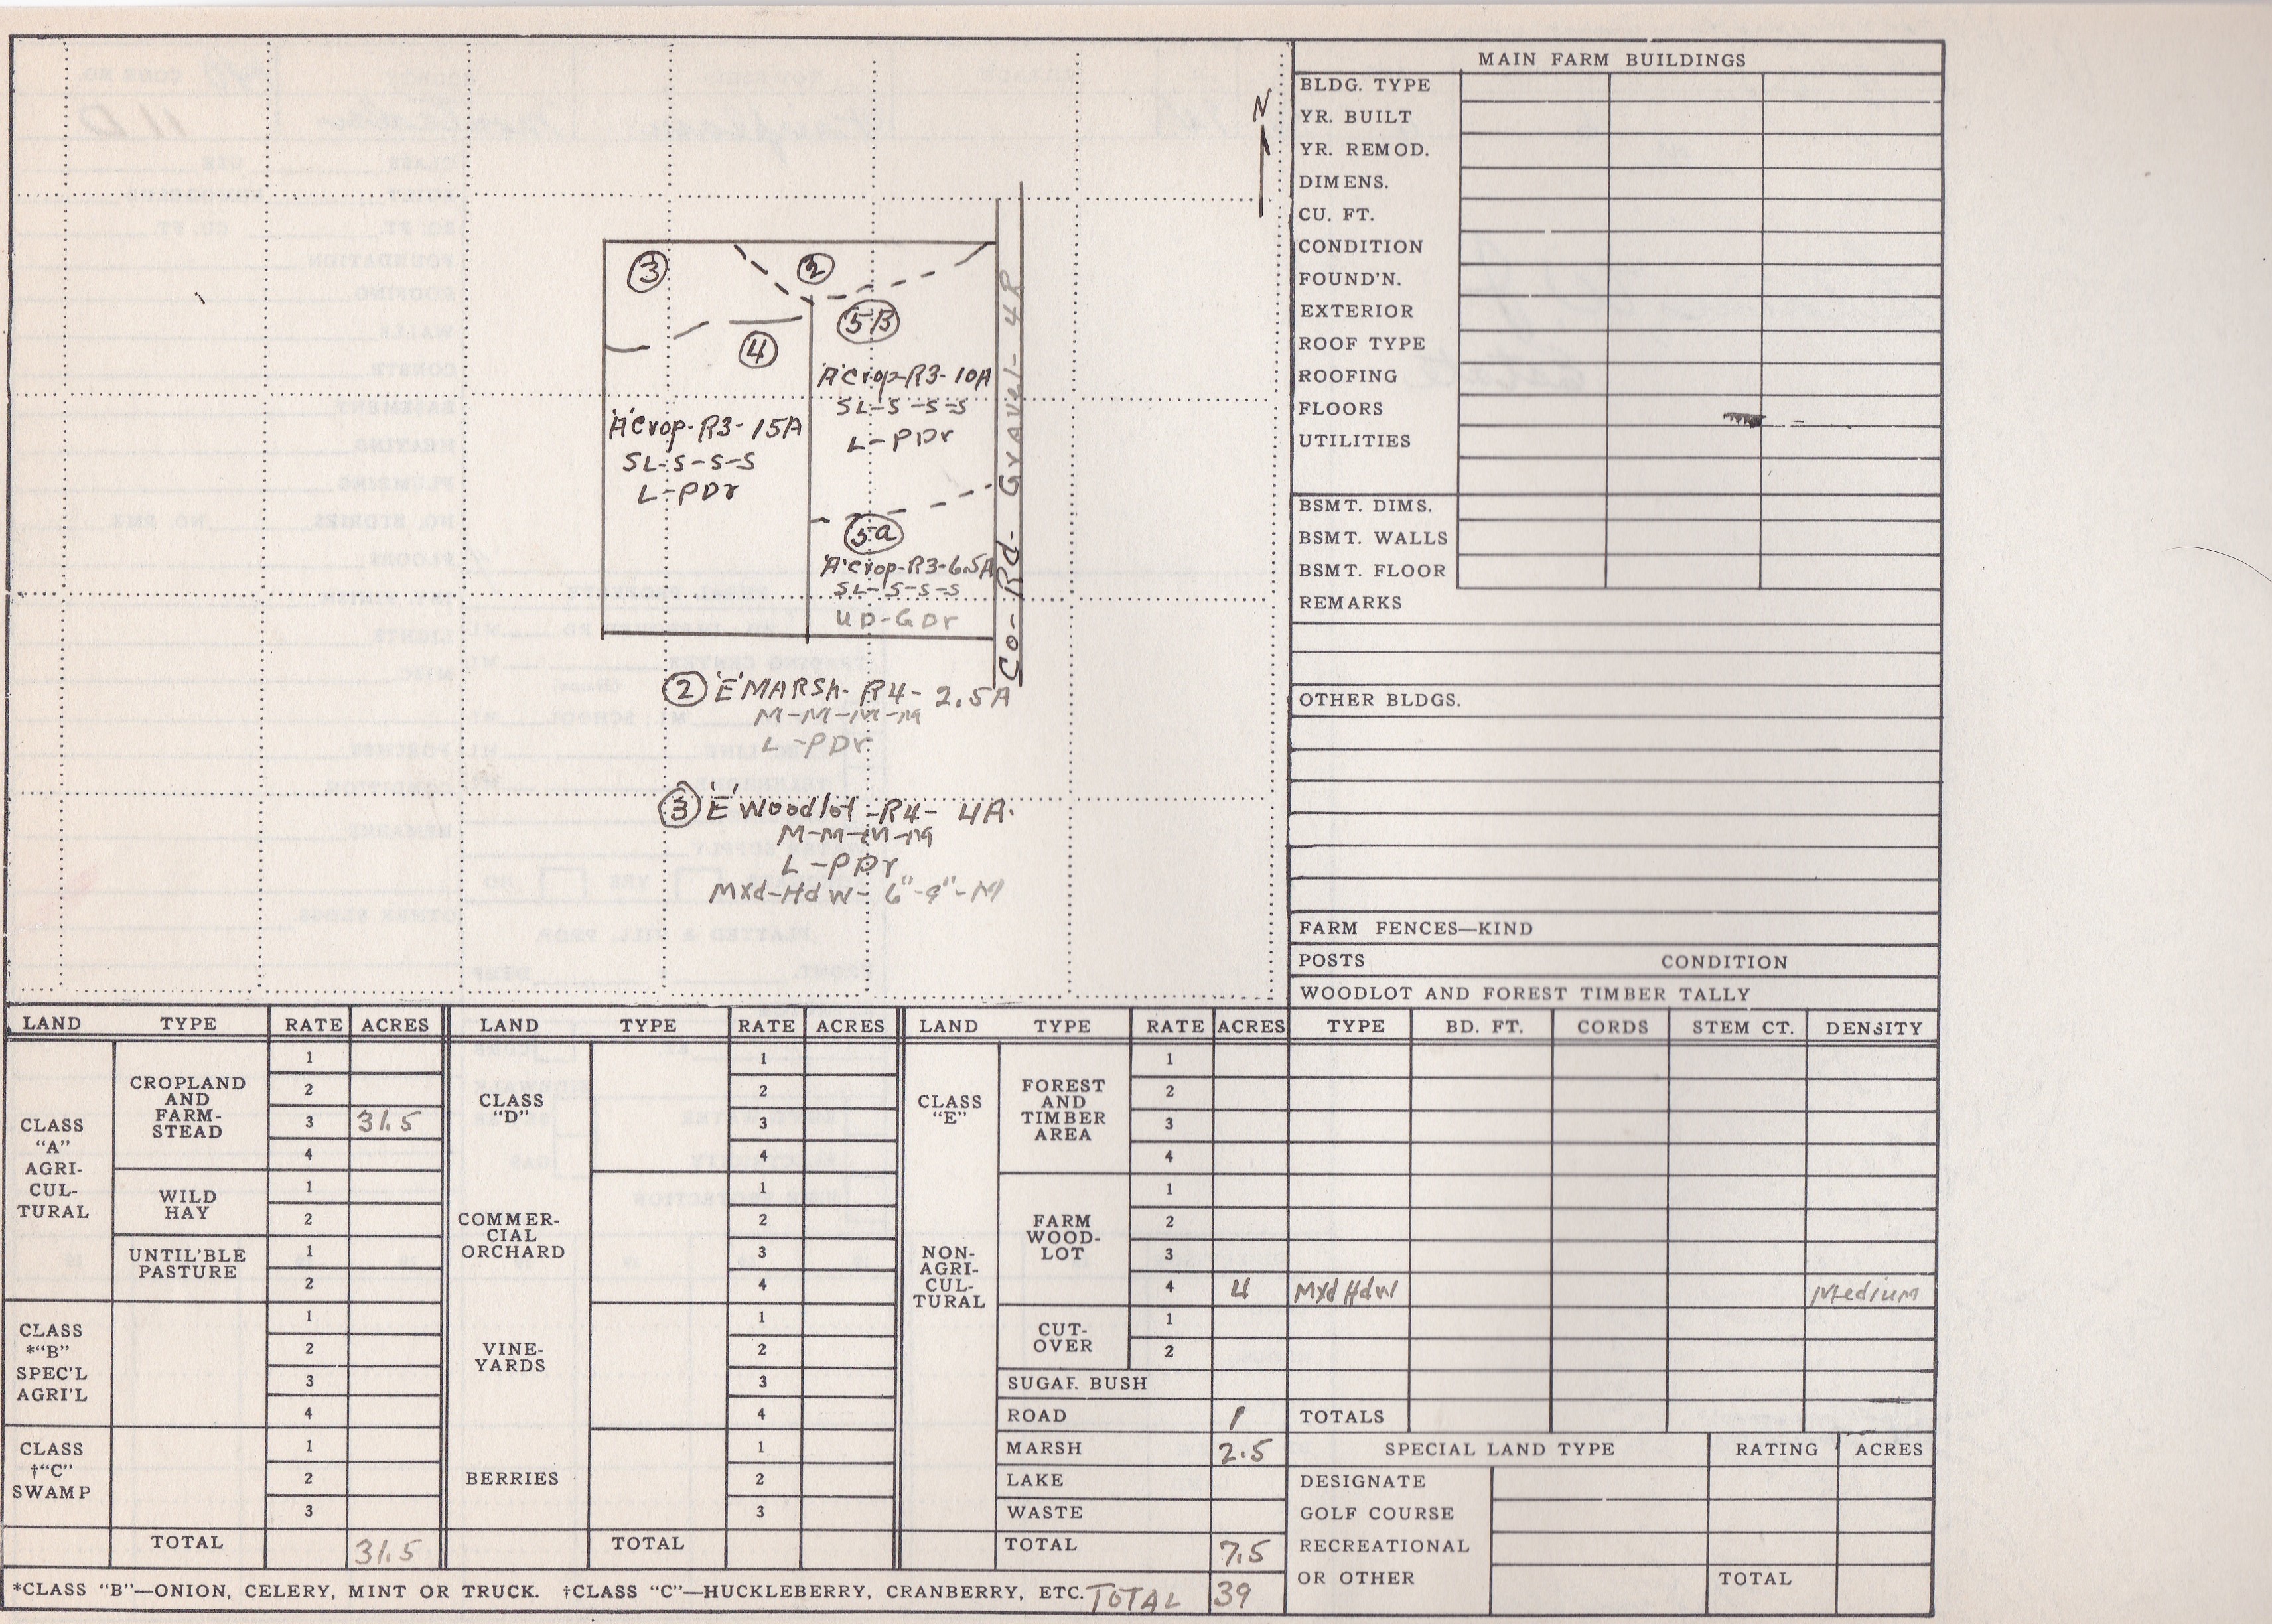 N
3
2
5B
4
'A'Crop-R3-10A
SL-S-S-S
L-PDr
'A'Crop-R3-15A
SL-S-S-S
L-PDr
5a
'A'Crop-R3-6.5A
SL-S-S-S
UD-GDr
Co- Rd- Gravel- 4R
2 'E' MARSh- R4- 2.5A
M-M-M-M
L-PDr
3 'E' Woodlot-R4- 4A.
M-M-M-M
L-PDr
Mxd-Hdw- 6"-9"-M
MAIN FARM BUILDINGS
BLDG. TYPE
YR. BUILT
YR. REMOD.
DIMENS.
CU. FT.
CONDITION
FOUND'N.
EXTERIOR
ROOF TYPE
ROOFING
FLOORS
UTILITIES
BSMT. DIMS.
BSMT. WALLS
BSMT. FLOOR
REMARKS
OTHER BLDGS.
FARM FENCES—KIND
POSTS CONDITION
WOODLOT AND FOREST TIMBER TALLY
LAND TYPE RATE ACRES LAND TYPE RATE ACRES LAND TYPE RATE ACRES TYPE BD. FT. CORDS STEM CT. DENSITY
CLASS
"A"
AGRI-
CUL-
TURAL
CROPLAND
AND
FARM-
STEAD
1
2
3 31.5
4
WILD
HAY
1
2
UNTIL'BLE
PASTURE
1
2
CLASS
*"B"
SPEC'L
AGRI'L
1
2
3
4
CLASS
†"C"
SWAMP
1
2
3
TOTAL 31.5
CLASS
"D"
1
2
3
4
COMMER-
CIAL
ORCHARD
1
2
3
4
VINE-
YARDS
1
2
3
4
BERRIES
1
2
3
TOTAL
CLASS
"E"
NON-
AGRI-
CUL-
TURAL
FOREST
AND
TIMBER
AREA
1
2
3
4
FARM
WOOD-
LOT
1
2
3
4 4 Mxd Hdw Medium
CUT-
OVER
1
2
SUGAR BUSH
ROAD 1
MARSH 2.5
LAKE
WASTE
TOTAL 7.5
TOTALS
SPECIAL LAND TYPE RATING ACRES
DESIGNATE
GOLF COURSE
RECREATIONAL
OR OTHER TOTAL
*CLASS "B"—ONION, CELERY, MINT OR TRUCK. †CLASS "C"—HUCKLEBERRY, CRANBERRY, ETC. TOTAL 39